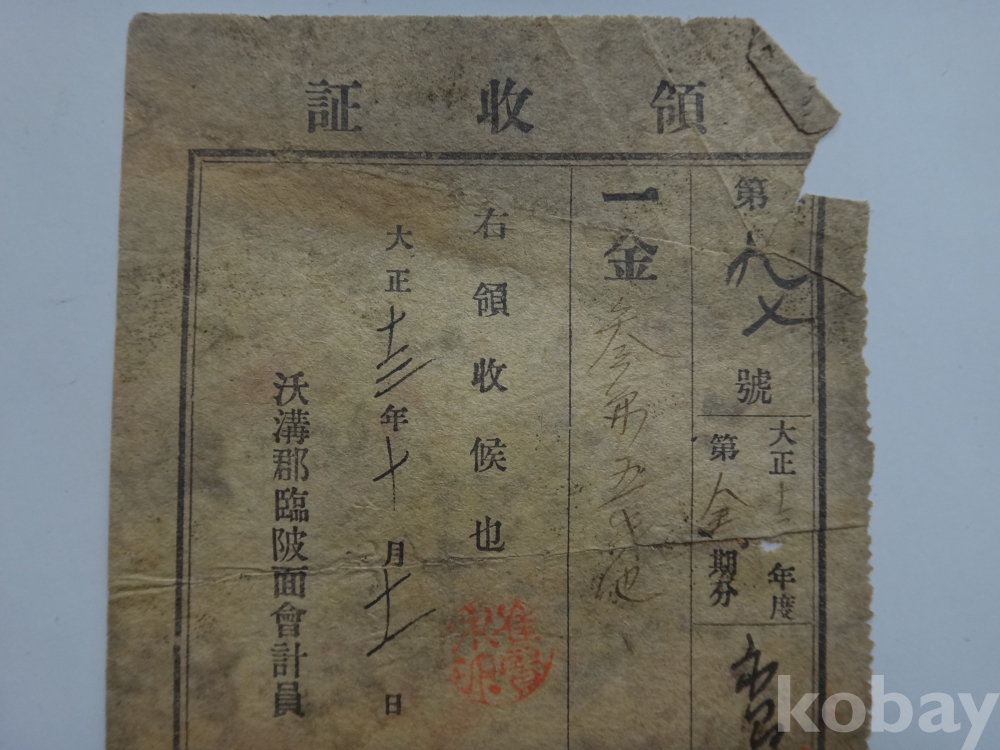 領收証
第九七號
大正 年度
第全期分
一金 參 五
右領收候也
大正十三年十月十一日
沃溝郡臨陂面會計員
kobay